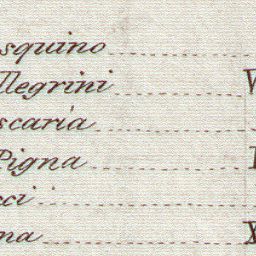 squino
llegrini V
scaria
Pigna
cci
na X